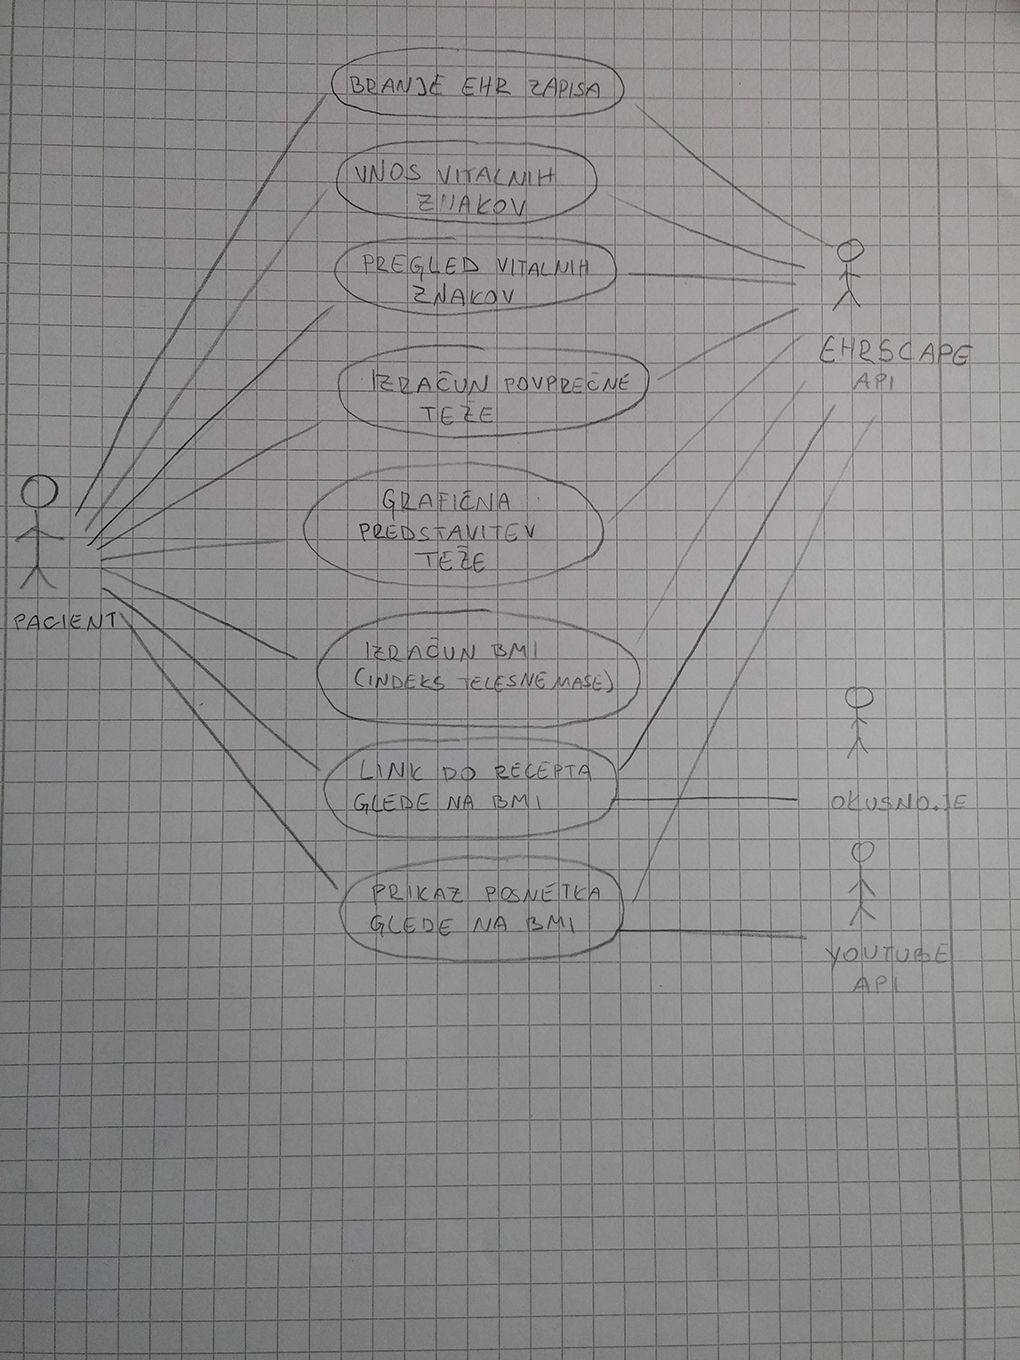 BRANJE EHR ZAPISA
VNOS VITALNIH
ZNAKOV
PREGLED VITALNIH
ZNAKOV
IZRAČUN POVPREČNE
TEŽE
GRAFIČNA
PREDSTAVITEV
TEŽE
IZRAČUN BMI
(INDEKS TELESNE MASE)
LINK DO RECEPTA
GLEDE NA BMI
PRIKAZ POSNETKA
GLEDE NA BMI
PACIENT
EHRSCAPE
API
OKUSNO.JE
YOUTUBE
API